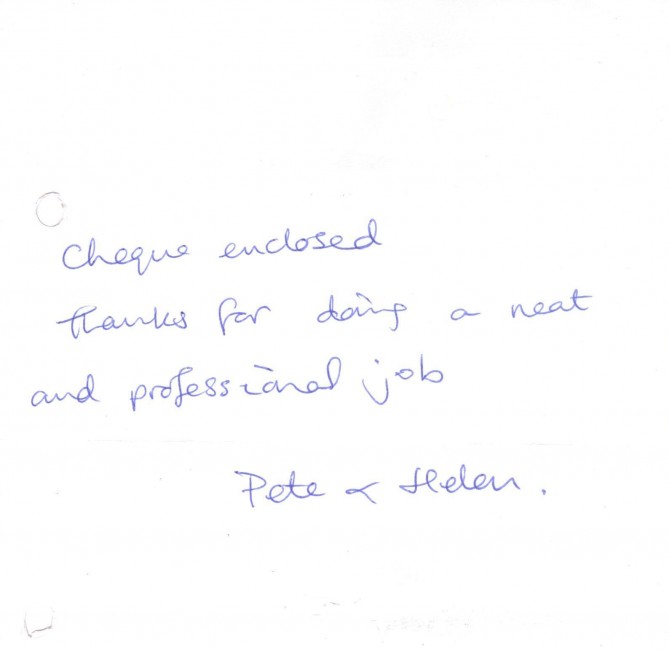 Cheque enclosed
thanks for doing a neat
and professional job
Pete & Helen.